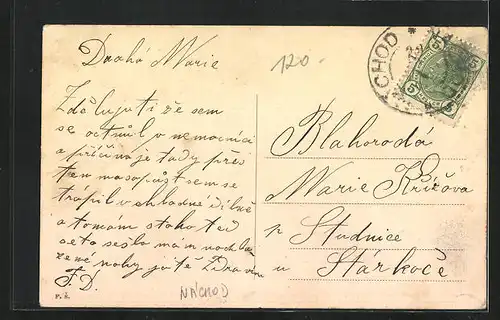 Drahá Marie
Zděluji ti že sem
se octnul v nemocnici
a příčina je tady přes
ten masopust sem se
trápil v chladné dílně
a to mám z toho teď
se to sešlo mám
nohy já tě Zdravím
F. D.
120.-
CHOD
5
5
Blahorodá
Marie Křížova
p Studnice
u Stárkoče
F. S.
NÁCHOD